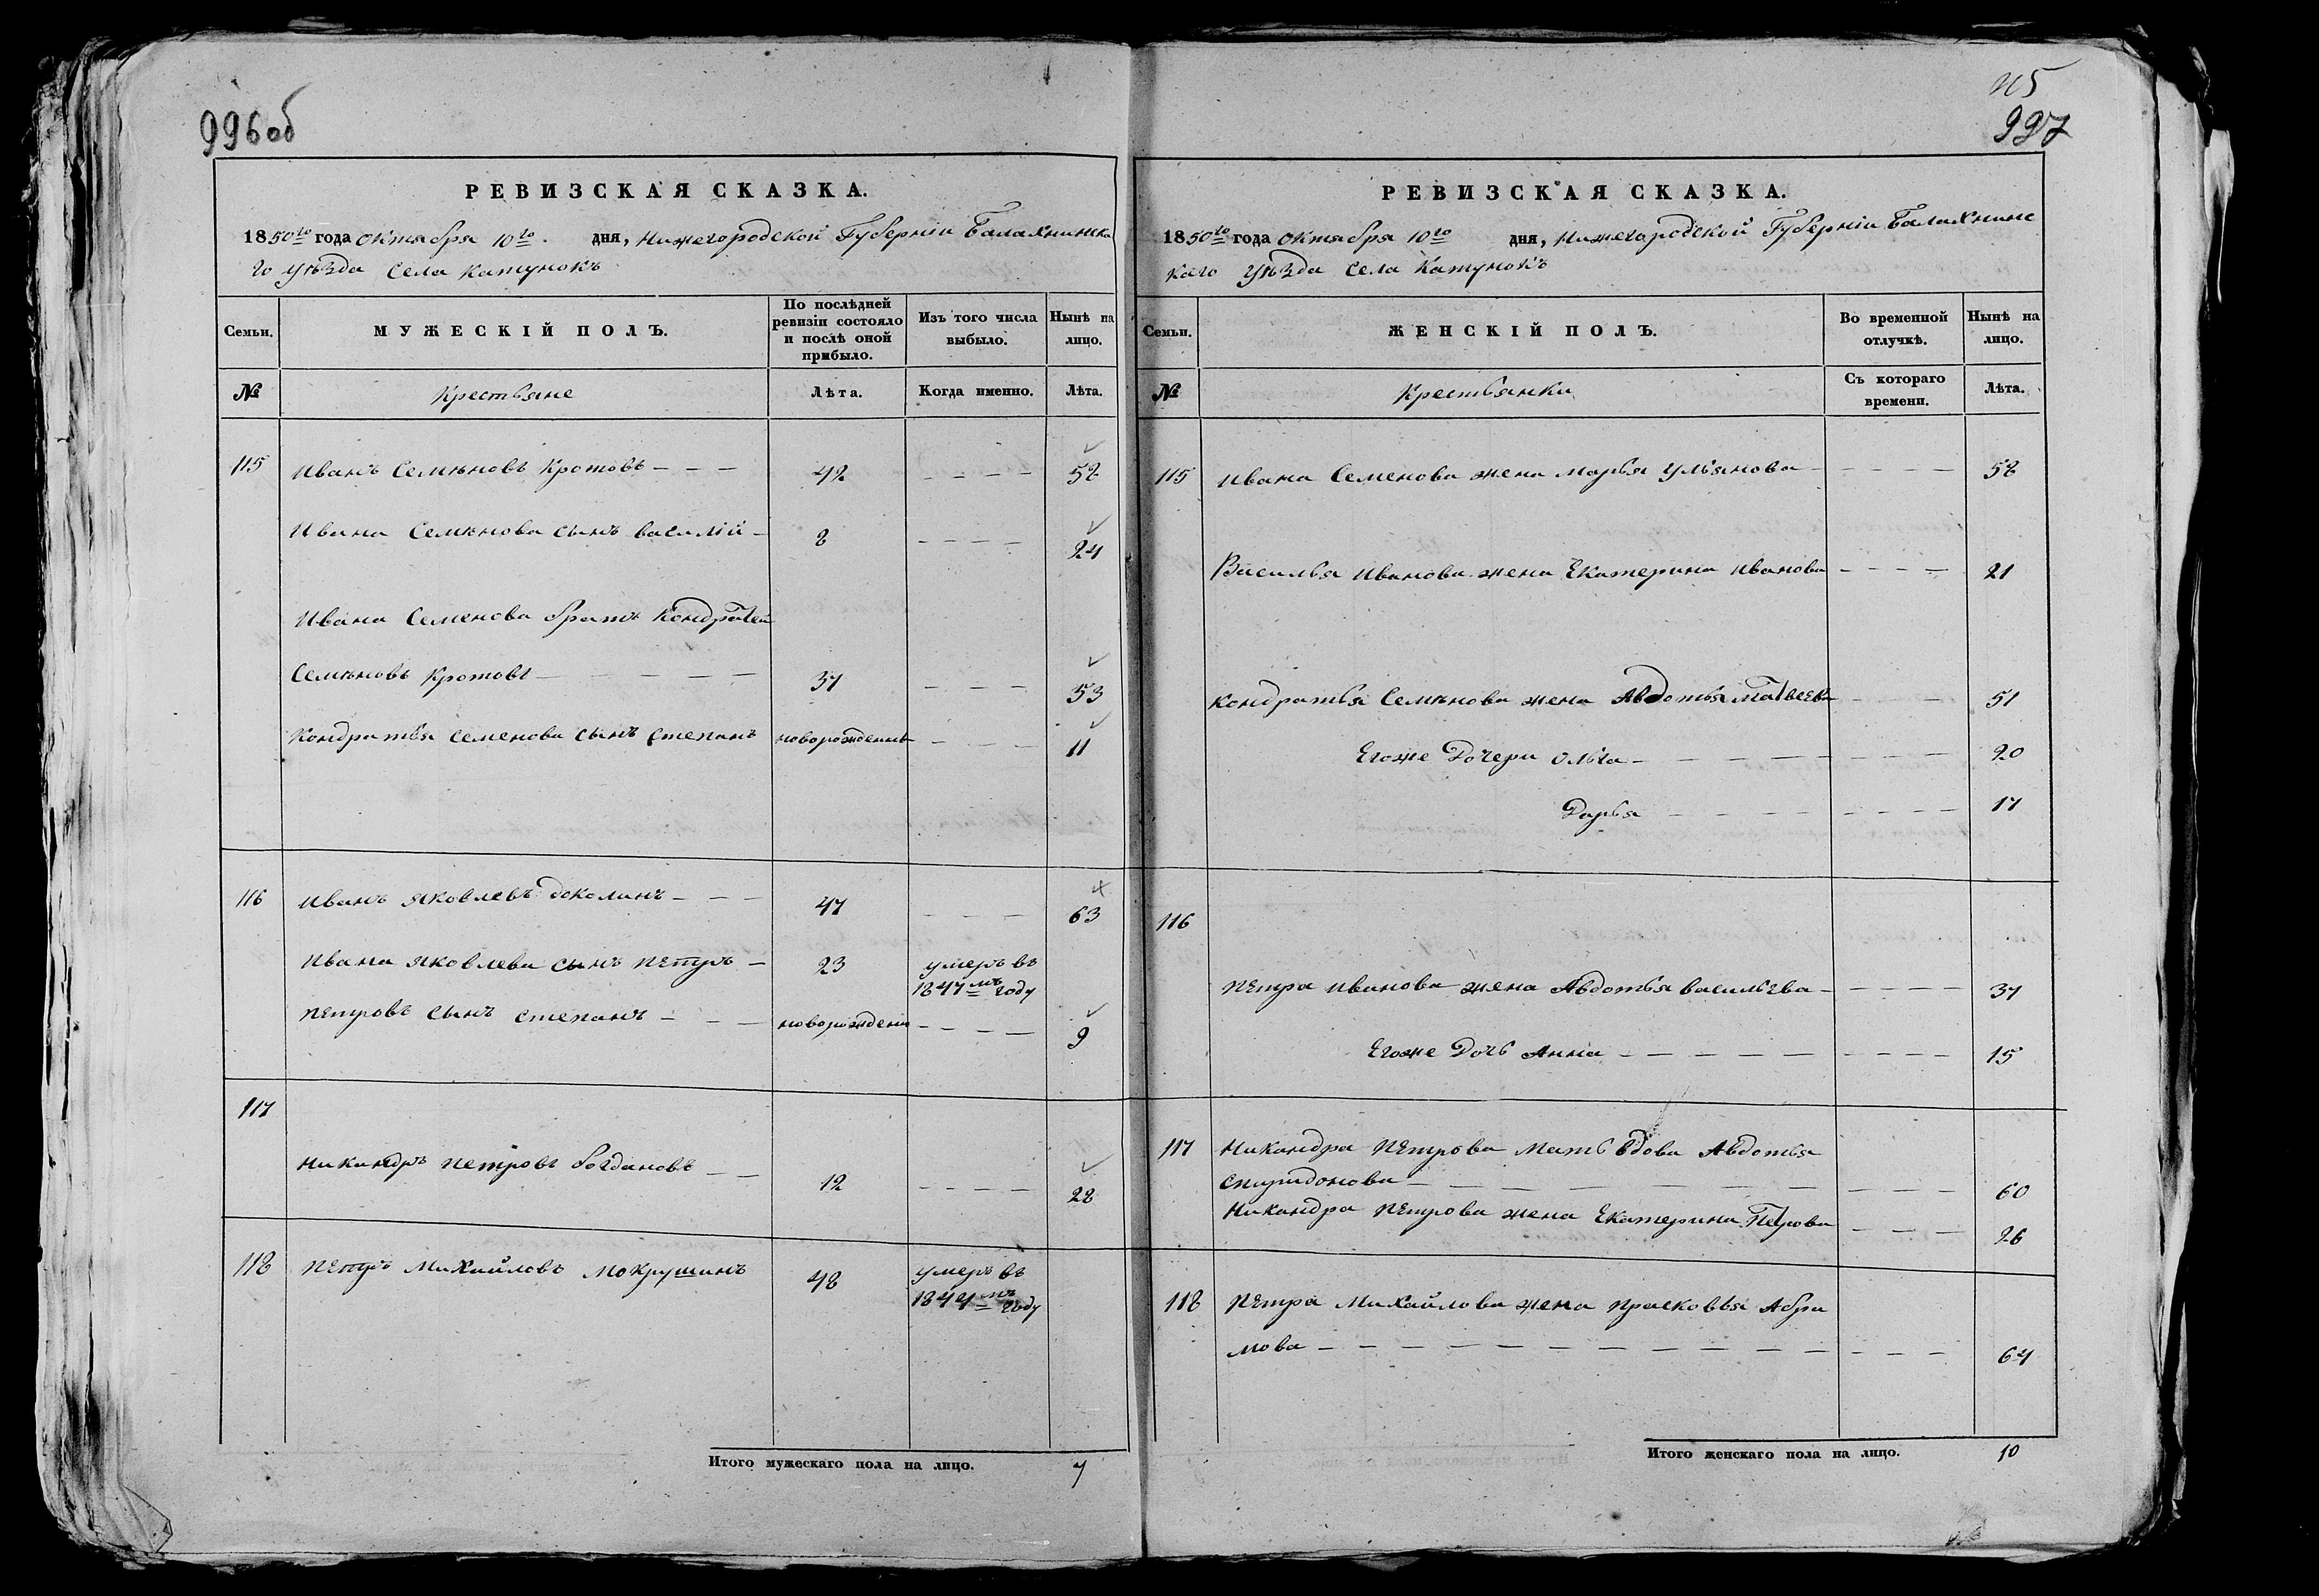 996 об
РЕВИЗСКАЯ СКАЗКА.
1850го года октября 10го дня, Нижегородской Губерніи Балахнинска
го уѣзда села Катунокъ
Семьи. МУЖЕСКІЙ ПОЛЪ. По послѣдней ревизіи состояло и послѣ оной прибыло. Изъ того числа выбыло. Нынѣ на лицо.
№ Крестьяне Лѣта. Когда именно. Лѣта.
115 Иванъ Семѣновъ Кротовъ - - - 42 - - - - 58
Ивана Семѣнова сынъ Василій - 8 - - - - 24
Ивана Семенова братъ Кондратей
Семѣновъ Кротовъ - - - - - 37 - - - 53
Кондратья Семенова сынъ Степанъ новорожденъ - - - 11
116 Иванъ Яковлевъ - - - 47 - - - 63
Ивана Яковлева сынъ Петръ - 23 умеръ въ
1847мъ году
Петровъ сынъ Степанъ - - - новорожденъ - - - - 9
117
Никандръ Петровъ Богдановъ - - 12 - - - - 28
118 Петръ Михайловъ Мокрушинъ 48 умеръ въ
1844мъ году
Итого мужескаго пола на лицо. 7
115
997
РЕВИЗСКАЯ СКАЗКА.
1850го года октября 10го дня, Нижегородской Губерніи Балахнинс
каго уѣзда села Катунокъ
Семьи. ЖЕНСКІЙ ПОЛЪ. Во временной отлучкѣ. Нынѣ на лицо.
№ Крестьянки Съ котораго времени. Лѣта.
115 Ивана Семенова жена Марья Ульянова - - - - - 58
Василья Иванова жена Екатерина Иванова - - - - 21
Кондратья Семѣнова жена Авдотья Матвеева - - - 51
Егоже Дочери Ольга - - - - - - - 20
Дарья - - - - - - - - 17
116
Петра Иванова жена Авдотья Васильева - - - - - 37
Егоже Дочь Анна - - - - - - - - - 15
117 Никандра Петрова Мать Вдова Авдотья
Спиридонова - - - - - - - - - - 60
Никандра Петрова жена Екатерина Петрова - - - 26
118 Петра Михайлова жена Прасковья Абра
мова - - - - - - - - - - - - - - - 64
Итого женскаго пола на лицо. 10